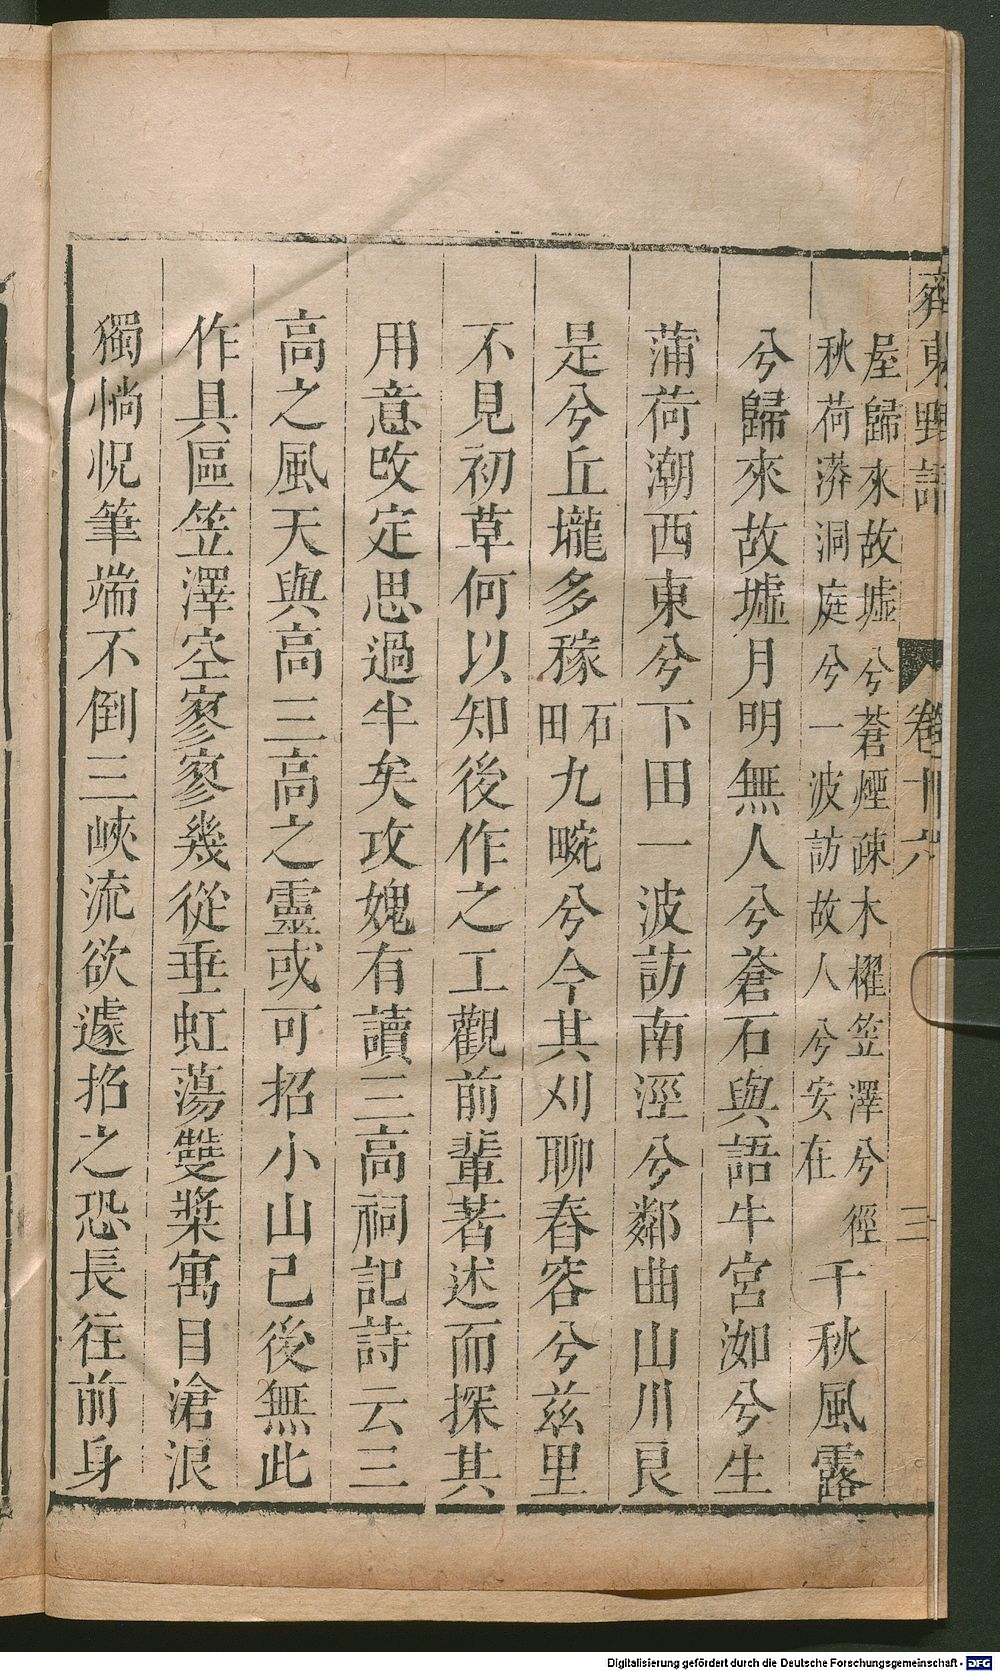 齊東野語 卷十六 三
屋歸來故墟兮蒼煙疎木櫂笠澤兮徑
秋荷漭洞庭兮一波訪故人兮安在
千秋風露
兮歸來故墟月明無人兮蒼石與語牛宮洳兮生
蒲荷潮西東兮下田一波訪南涇兮鄰曲山川良
是兮丘壠多稼石田九畹兮今其刈聊舂容兮兹里
不見初草何以知後作之工觀前輩著述而探其
用意改定思過半矣攻媿有讀三高祠記詩云三
高之風天與高三高之靈或可招小山已後無此
作具區笠澤空寥寥幾從垂虹蕩雙槳寓目滄浪
獨惝怳筆端不倒三峽流欲遽招之恐長往前身
Digitalisierung gefördert durch die Deutsche Forschungsgemeinschaft - DFG